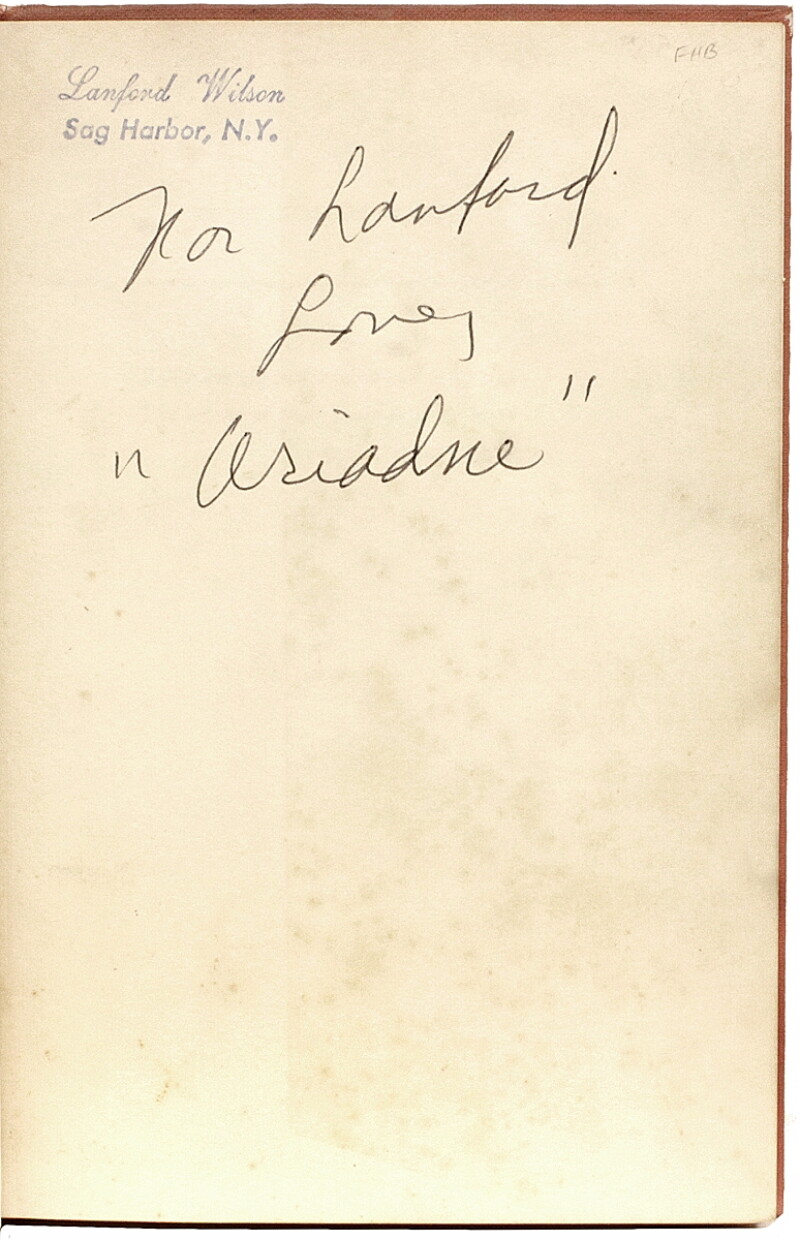 FHB
Lanford Wilson
Sag Harbor, N.Y.
For Lanford
Love,
"Ariadne"